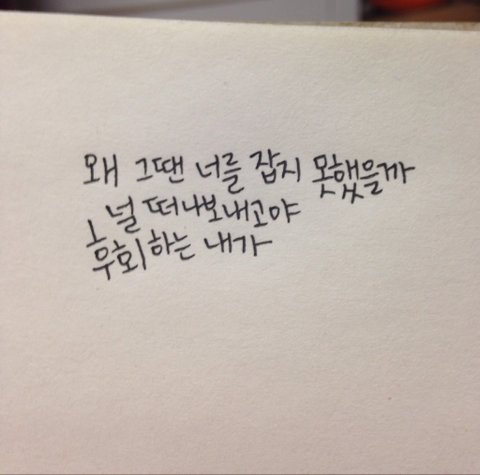 왜 그땐 너를 잡지 못했을까
널 떠나보내고야
후회하는 내가